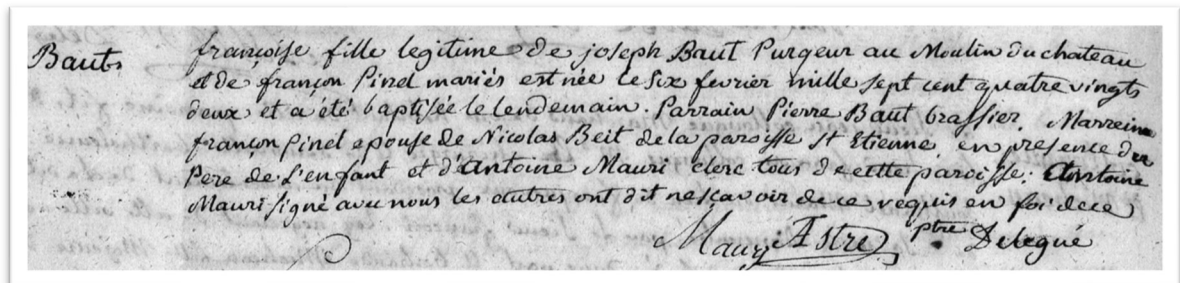 Baut
françoise fille legitime de joseph Baut Purgeur au Moulin du chateau
et de françon Pinel mariés est née le six fevrier mille sept cent quatre vingts
deux et a été baptisée le lendemain. Parrain Pierre Baut brassier. Marreine
françon Pinel epouse de Nicolas Beit de la paroisse St Etienne. en presence du
Pere de l'enfant et d'Antoine Mauri clerc tous de cette paroisse. Antoine
Mauri signé avec nous les autres ont dit ne sçavoir de ce requis en foi de ce
Maury Astre ptre Delegué